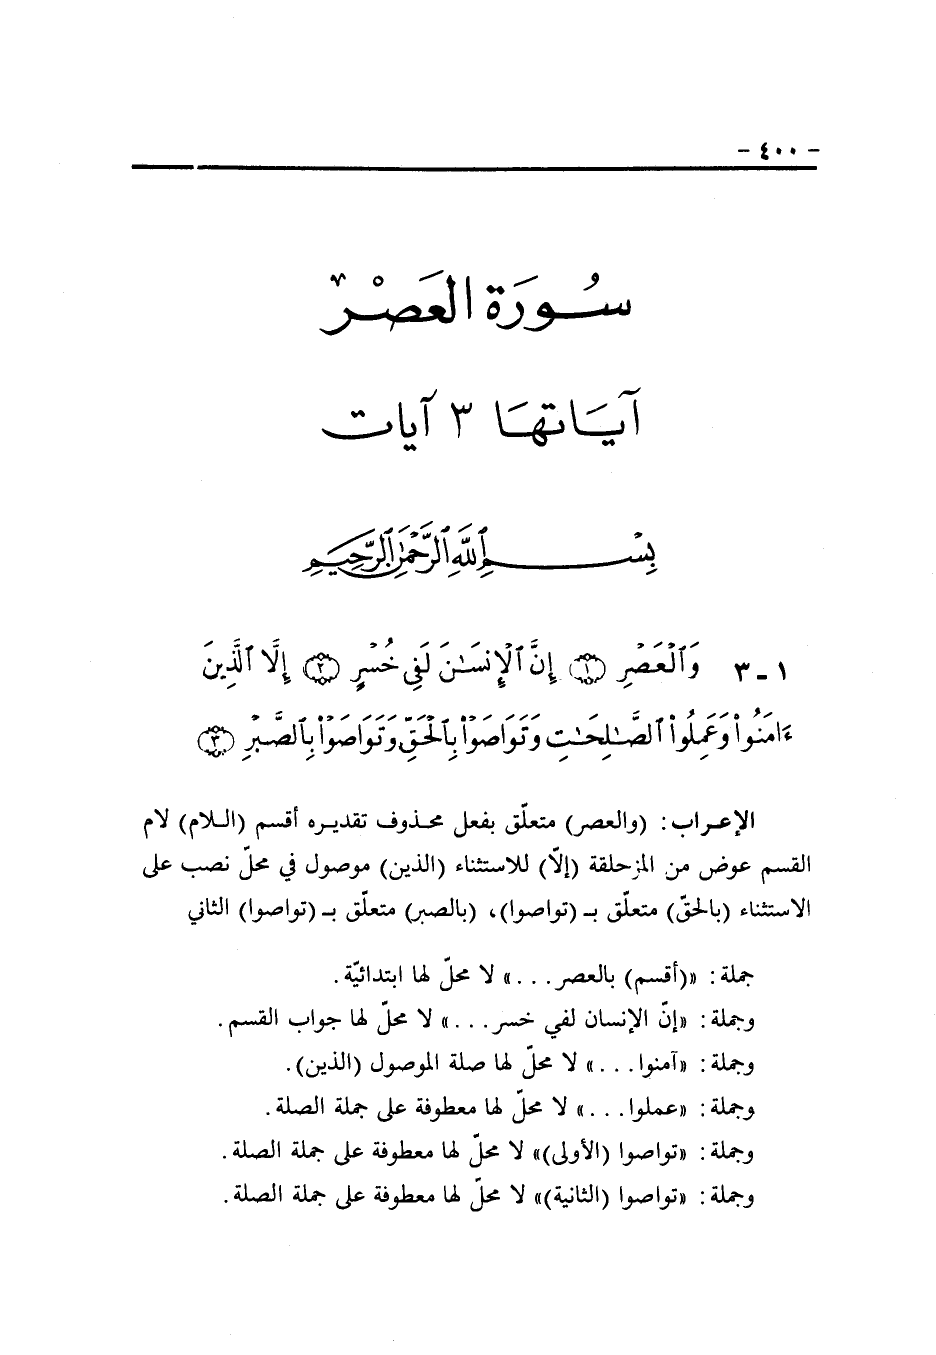 - ٤٠٠ -
سُورَة العَصْر
آيَاتهَا ٣ آيات
بِسْمِ ٱللَّهِ ٱلرَّحْمَٰنِ ٱلرَّحِيمِ
١ - ٣ وَٱلْعَصْرِ ﴿١﴾ إِنَّ ٱلْإِنسَٰنَ لَفِى خُسْرٍ ﴿٢﴾ إِلَّا ٱلَّذِينَ
ءَامَنُوا۟ وَعَمِلُوا۟ ٱلصَّٰلِحَٰتِ وَتَوَاصَوْا۟ بِٱلْحَقِّ وَتَوَاصَوْا۟ بِٱلصَّبْرِ ﴿٣﴾
الإعراب: (والعصر) متعلّق بفعل محذوف تقديره أقسم (اللام) لام
القسم عوض من المزحلقة (إلّا) للاستثناء (الذين) موصول في محلّ نصب على
الاستثناء (بالحقّ) متعلّق بـ (تواصوا)، (بالصبر) متعلّق بـ (تواصوا) الثاني
جملة: «(أقسم) بالعصر...» لا محلّ لها ابتدائيّة.
وجملة: «إنّ الإنسان لفي خسر...» لا محلّ لها جواب القسم.
وجملة: «آمنوا...» لا محلّ لها صلة الموصول (الذين).
وجملة: «عملوا...» لا محلّ لها معطوفة على جملة الصلة.
وجملة: «تواصوا (الأولى)» لا محلّ لها معطوفة على جملة الصلة.
وجملة: «تواصوا (الثانية)» لا محلّ لها معطوفة على جملة الصلة.